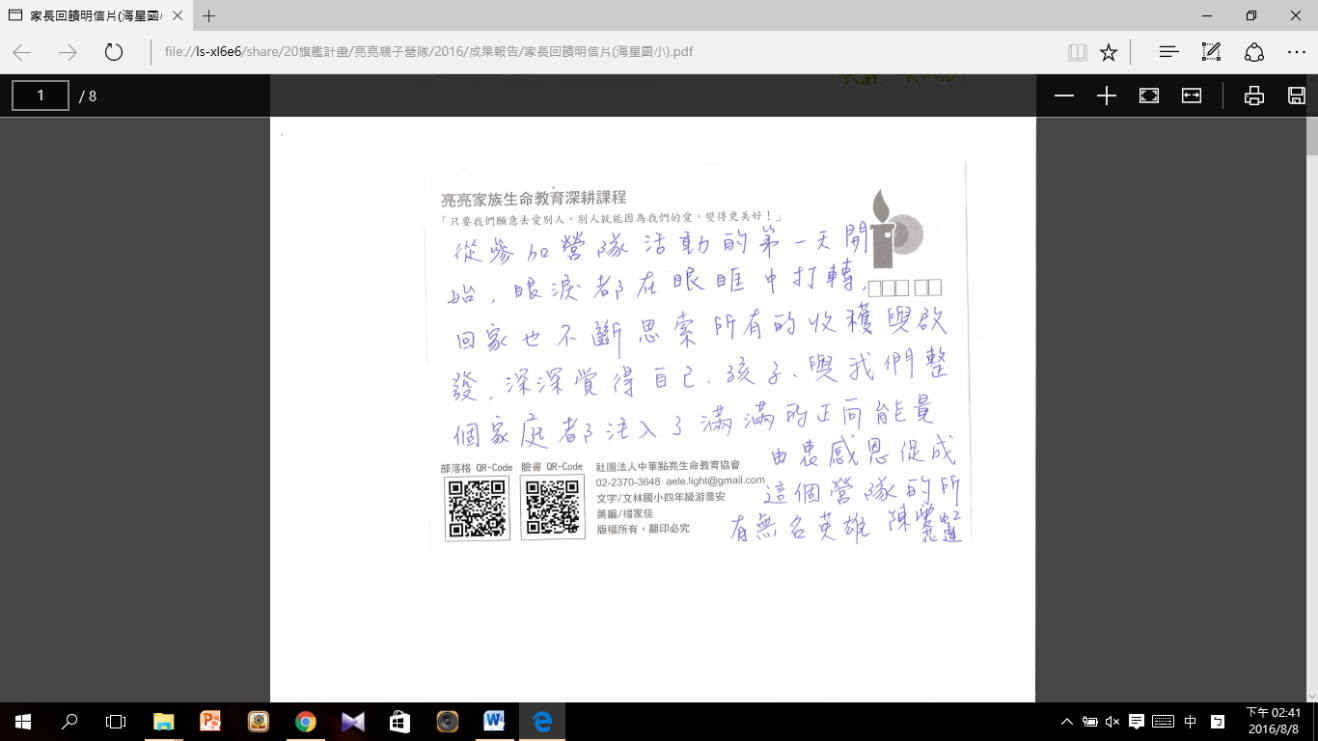 家長回饋明信片(海星國小
file://ls-xl6e6/share/20旗艦計畫/亮亮親子營隊/2016/成果報告/家長回饋明信片(海星國小).pdf
1 / 8
亮亮家族生命教育深耕課程
「只要我們願意去愛別人，別人就能因為我們的愛，變得更美好！」
從參加營隊活動的第一天開
始，眼淚都在眼眶中打轉，
回家也不斷思索所有的收穫與啟
發，深深覺得自己、孩子、與我們整
個家庭都注入了滿滿的正向能量
由衷感恩促成
這個營隊的所
有無名英雄 陳
花蓮
部落格 QR-Code 臉書 QR-Code
社團法人中華點亮生命教育協會
02-2370-3648 aele.light@gmail.com
文字/文林國小四年級游喬安
美編/楊家佳
版權所有，翻印必究
中
下午 02:41
2016/8/8